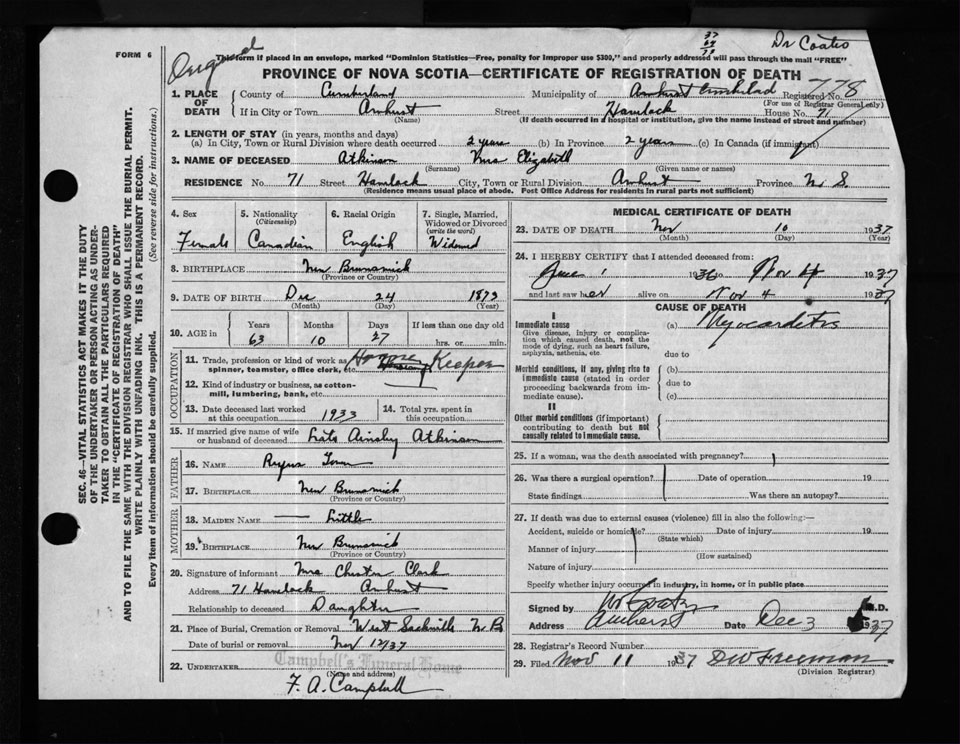 37
64
73
Dr Coates
FORM 6
Original
This form if placed in an envelope, marked "Dominion Statistics—Free, penalty for improper use $300," and properly addressed will pass through the mail "FREE"
PROVINCE OF NOVA SCOTIA—CERTIFICATE OF REGISTRATION OF DEATH
1. PLACE OF DEATH County of Cumberland Municipality of Amherst Cumberland Registered No. 778
(For use of Registrar General only)
If in City or Town Amherst Street Havelock House No. 71
(Name) (If death occurred in a hospital or institution, give the name instead of street and number)
2. LENGTH OF STAY (in years, months and days)
(a) In City, Town or Rural Division where death occurred 2 years (b) In Province 2 years (c) In Canada (if immigrant)
3. NAME OF DECEASED Atkinson Mrs Elizabeth
(Surname) (Given name or names)
RESIDENCE No. 71 Street Havelock City, Town or Rural Division Amherst Province N. S.
(Residence means usual place of abode. Post Office Address for residents in rural parts not sufficient)
4. Sex Female
5. Nationality (Citizenship) Canadian
6. Racial Origin English
7. Single, Married, Widowed or Divorced (write the word) Widowed
8. BIRTHPLACE New Brunswick
(Province or Country)
9. DATE OF BIRTH Dec 24 1873
(Month) (Day) (Year)
10. AGE in Years Months Days If less than one day old
63 10 27 hrs. or min.
OCCUPATION
11. Trade, profession or kind of work as spinner, teamster, office clerk, etc. House Keeper
12. Kind of industry or business, as cotton-mill, lumbering, bank, etc. —
13. Date deceased last worked at this occupation 1933
14. Total yrs. spent in this occupation
15. If married give name of wife or husband of deceased Late Ainsley Atkinson
FATHER
16. NAME Rufus Tower
17. BIRTHPLACE New Brunswick
(Province or Country)
MOTHER
18. MAIDEN NAME — Little
19. BIRTHPLACE New Brunswick
(Province or Country)
20. Signature of informant Mrs Chester Clark
Address 71 Havelock Amherst
Relationship to deceased Daughter
21. Place of Burial, Cremation or Removal West Sackville N B
Date of burial or removal Nov 12/37
22. UNDERTAKER Campbell's Funeral Home
(Name and address)
F. A. Campbell
MEDICAL CERTIFICATE OF DEATH
23. DATE OF DEATH Nov 10 1937
(Month) (Day) (Year)
24. I HEREBY CERTIFY that I attended deceased from:
June 1 1936 to Nov 4 1937
and last saw her alive on Nov 4 1937
CAUSE OF DEATH
I
Immediate cause (a) Myocarditis
Give disease, injury or complication which caused death, not the mode of dying, such as heart failure, asphyxia, asthenia, etc.
due to
Morbid conditions, if any, giving rise to immediate cause (stated in order proceeding backwards from immediate cause).
(b)
due to
(c)
II
Other morbid conditions (if important) contributing to death but not causally related to immediate cause.
25. If a woman, was the death associated with pregnancy?
26. Was there a surgical operation? Date of operation 19
State findings Was there an autopsy?
27. If death was due to external causes (violence) fill in also the following:—
Accident, suicide or homicide? Date of injury 19
(State which)
Manner of injury
(How sustained)
Nature of injury
Specify whether injury occurred in industry, in home, or in public place
Signed by Coates M.D.
Address Amherst Date Dec 3 1937
28. Registrar's Record Number
29. Filed Nov 11 1937 DW Freeman
(Division Registrar)
SEC. 46—VITAL STATISTICS ACT MAKES IT THE DUTY
OF THE UNDERTAKER OR PERSON ACTING AS UNDER-
TAKER TO OBTAIN ALL THE PARTICULARS REQUIRED
IN THE "CERTIFICATE OF REGISTRATION OF DEATH"
AND TO FILE THE SAME WITH THE DIVISION REGISTRAR WHO SHALL ISSUE THE BURIAL PERMIT.
WRITE PLAINLY WITH UNFADING INK. THIS IS A PERMANENT RECORD.
Every item of information should be carefully supplied. (See reverse side for instructions.)